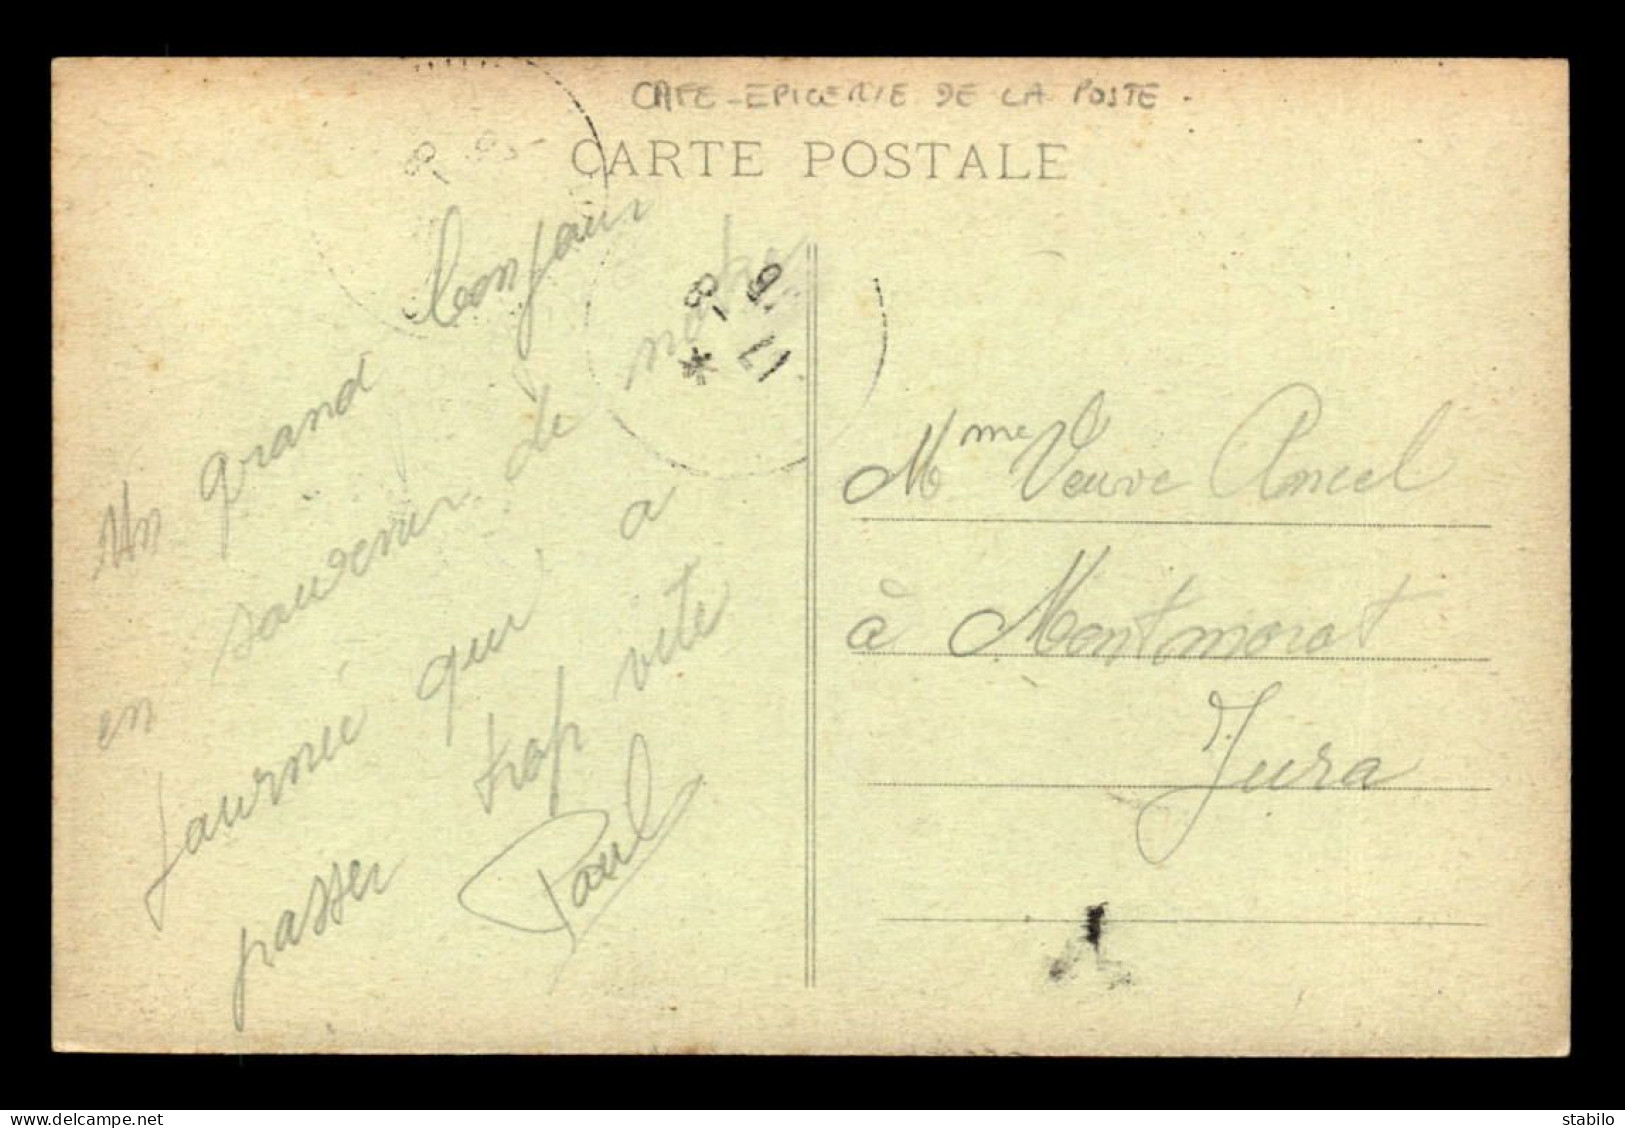 CAFE-EPICERIE DE LA POSTE.
CARTE POSTALE
Un grand bonjour
en souvenir de notre
journée qui a
passer trop vite
Paul
8 - 9
17
*
Mme Veuve Ancel
à Montmorot
Jura
www.delcampe.net
stabilo